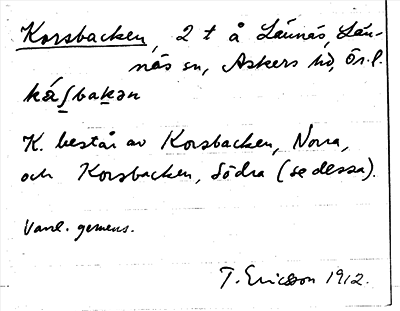 Korsbacken, 2 t å Lännäs, Län-
näs sn, Askers hd, Ör. l.
káʃbakən
K. består av Korsbacken, Norra,
och Korsbacken, Södra (se dessa).
Vanl. gemens.
T. Ericsson 1912.